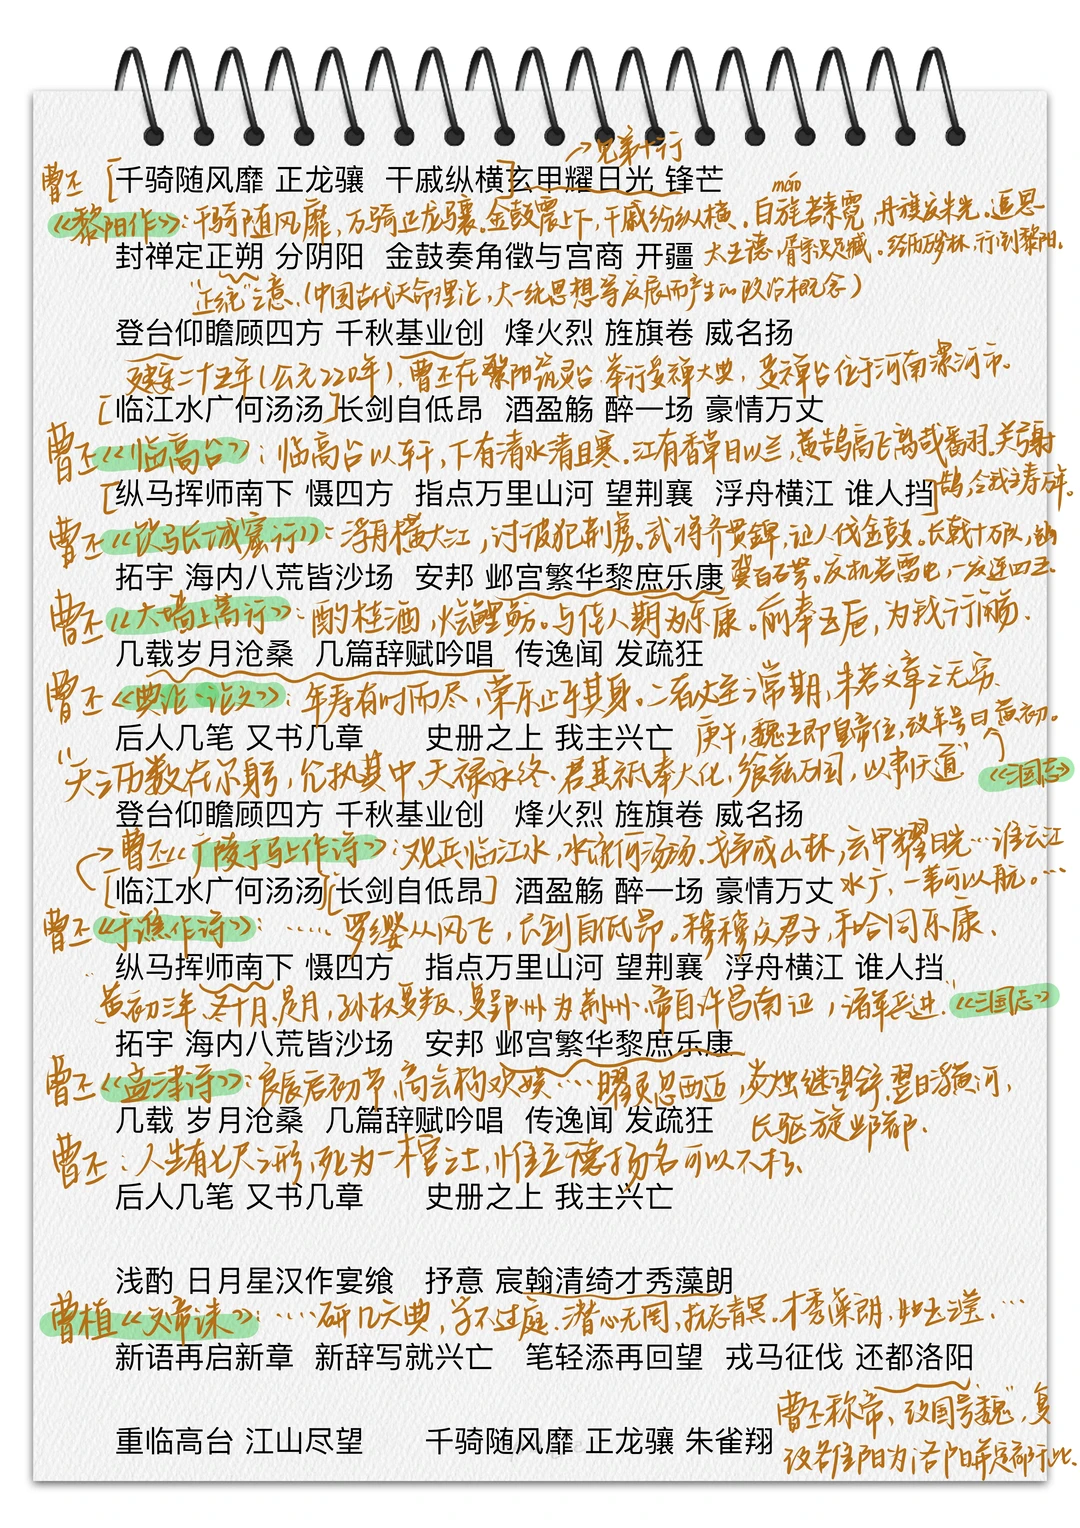 →兄弟十行
曹丕 [千骑随风靡 正龙骧 干戚纵横]玄甲耀日光 锋芒
《黎阳作》:千骑随风靡,万骑正龙骧。金鼓震上下,干戚纷纵横。白旄若素霓,丹旗发朱光。追思
máo
封禅定正朔 分阴阳 金鼓奏角徵与宫商 开疆
太王德,胥宇识足臧。经历万岁林,行行到黎阳。
"正统"之意。(中国古代天命理论,大一统思想等发展而产生的政治概念)
登台仰瞻顾四方 千秋基业创 烽火烈 旌旗卷 威名扬
延康二十五年(公元220年),曹丕在繁阳筑灵台 举行受禅大典,受禅台位于河南漯河市。
[临江水广何汤汤]长剑自低昂 酒盈觞 醉一场 豪情万丈
曹丕《临高台》:临高台以轩,下有清水清且寒。江有香草目以兰,黄鹄高飞离哉翻。关弓射
鹄,令我主寿万年。
[纵马挥师南下 慑四方 指点万里山河 望荆襄 浮舟横江 谁人挡]
曹丕《饮马长城窟行》:浮舟横大江,讨彼犯荆虏。武将齐贯錍,征人伐金鼓。长戟十万队,幽
冀百石弩。发机若雷电,一发连四五。
拓宇 海内八荒皆沙场 安邦 邺宫繁华黎庶乐康
曹丕《大墙上蒿行》:酌桂酒,烩鲤鲂。与佳人期为乐康。前奉玉卮,为我行觞.
几载岁月沧桑 几篇辞赋吟唱 传逸闻 发疏狂
曹丕《典论·论文》:年寿有时而尽,荣乐止乎其身。二者必至之常期,未若文章之无穷.
后人几笔 又书几章 史册之上 我主兴亡
庚午,魏王即皇帝位,改年号曰黄初。
"天之历数在尔躬,允执其中,天禄永终.君其祗奉大化,飨兹万国,以肃天道" 《三国志》
登台仰瞻顾四方 千秋基业创 烽火烈 旌旗卷 威名扬
曹丕《广陵于马上作诗》:观兵临江水,水流何汤汤.戈矛成山林,玄甲耀日光…谁云江
水广,一苇可以航。…
[临江水广何汤汤][长剑自低昂] 酒盈觞 醉一场 豪情万丈
曹丕《于谯作诗》:……罗缨从风飞,长剑自低昂。穆穆众君子,和合同乐康、
纵马挥师南下 慑四方 指点万里山河 望荆襄 浮舟横江 谁人挡
黄初三年,冬十月,是月,孙权复叛,复郢州为荆州.帝自许昌南征,诸军并进.《三国志》
拓宇 海内八荒皆沙场 安邦 邺宫繁华黎庶乐康
曹丕《孟津诗》:良辰启初节,高会构欢娱…曜灵忽西迈,炎烛继望舒.翌日浮黄河,
长驱旋邺都.
几载 岁月沧桑 几篇辞赋吟唱 传逸闻 发疏狂
曹丕:人生有七尺之形,死为一棺之土,惟立德扬名可以不朽、
后人几笔 又书几章 史册之上 我主兴亡
浅酌 日月星汉作宴飨 抒意 宸翰清绮才秀藻朗
曹植《文帝诔》:……研几六典,学不过庭.潜心无罔,抗志青冥。才秀藻朗,如玉之莹.…
新语再启新章 新辞写就兴亡 笔轻添再回望 戎马征伐 还都洛阳
曹丕称帝,改国号"魏",复
改雒阳为洛阳并定都于此.
重临高台 江山尽望 千骑随风靡 正龙骧 朱雀翔